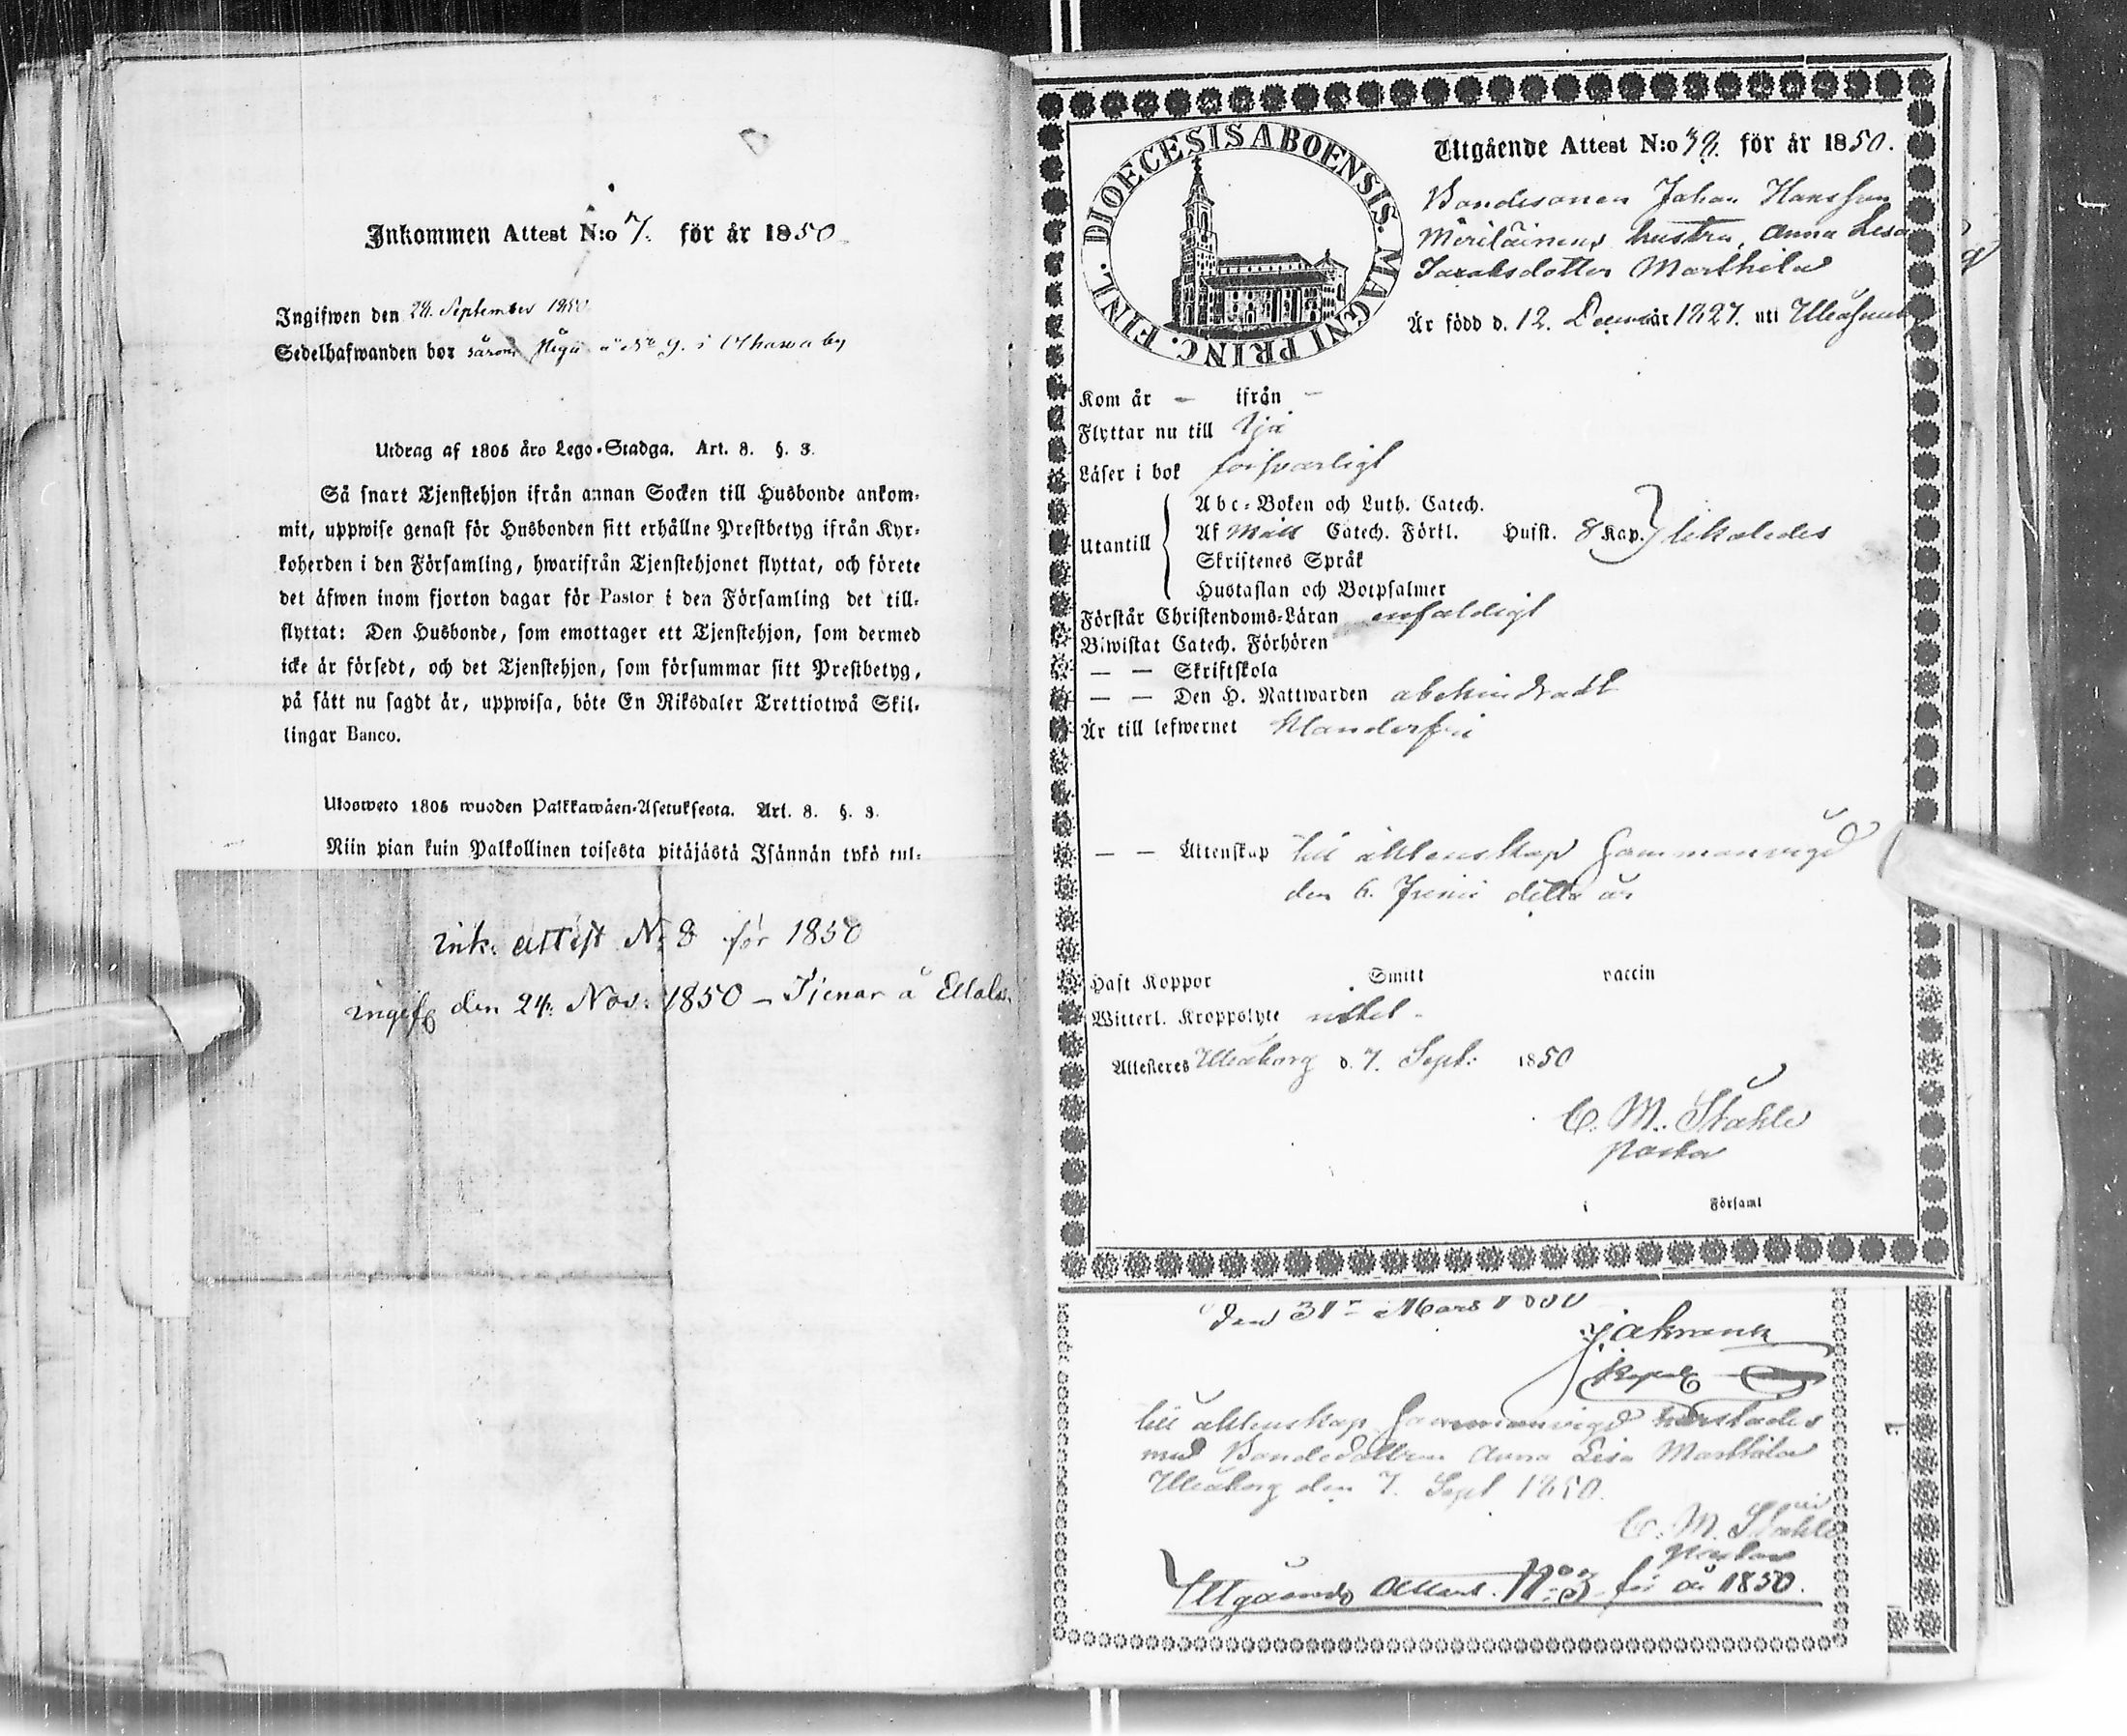 Inkommen Attest N:o 7. för år 1850
Ingifwen den 28. September 1850
Sedelhafwanden bor såsom å No 9. i by
Utdrag af 1805 års Lego-Stadga. Art. 8. §. 3.
Så snart Tjenstehjon ifrån annan Socken till Husbonde ankom-
mit, uppwise genast för Husbonden sitt erhållne Prestbetyg ifrån Kyr-
koherden i den Församling, hwarifrån Tjenstehjonet flyttat, och förete
det äfwen inom fjorton dagar för Pastor i den Församling det till-
flyttat: Den Husbonde, som emottager ett Tjenstehjon, som dermed
icke är försedt, och det Tjenstehjon, som försummar sitt Prestbetyg,
på sätt nu sagdt är, uppwisa, böte En Riksdaler Trettiotwå Skil-
lingar Banco.
Ulosweto 1805 wuoden Palkkawäen-Asetuksesta. Art. 8. §. 3.
Niin pian kuin Palkollinen toisesta pitäjästä Isännän tykö tul-
ink. attest N: 8 för 1850
ingifv den 24. Nov: 1850 – Tjenar å
DIOECESIS ABOENSIS. MAGNI PRINC. FINL.
Utgående Attest N:o 39. för år 1850.
Bondesonen Johan Hansson
Meriläinens hustru, Anna Lisa
Jacobsdotter Marttila
Är född d. 12. Decemb är 1827. uti
Kom år – ifrån –
Flyttar nu till Ijo
Läser i bok försvarligt
Utantill
Abc-Boken och Luth. Catech.
Af Catech. Förkl. Husst. 8 Kap. likaledes
Skriftenes Språk
Hustaflan och Botpsalmer
Förstår Christendoms-Läran enfaldigt
Biwistat Catech. Förhören
— — Skriftskola
— — Den H. Nattwarden obehindradt
Är till lefwernet klanderfri
— — Äktenskap till äktenskap sammanvigd
den 6. Junii detta år
Haft Koppor Smitt vaccin
Witterl. Kroppslyte intet -
Attesteres Uleåborg d. 7. Sept: 1850
C. M. Ståhle
Pastor
i Församl
den 31 Mars 1850
till äktenskap sammanvigd härstädes
med Bondedottren Anna Lisa Marttila
Uleåborg den 7. Sept 1850.
C. M. Ståhle
Pastor
Utgående Attest. No: 3 för år 1850.